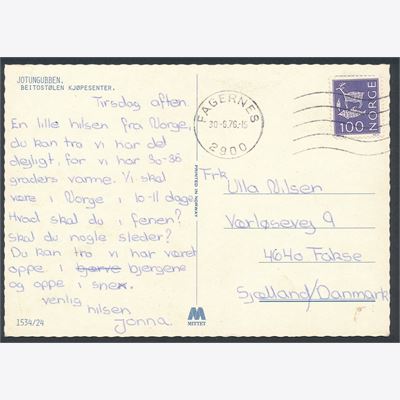 JOTUNGUBBEN.
BEITOSTØLEN KJØPESENTER.
Tirsdag aften.
En lille hilsen fra Norge,
du kan tro vi har det
dejligt, for vi har 30-36
graders varme. Vi skal
være i Norge i 10-11 dage.
Hvad skal du i ferien?
skal du nogle steder?
Du kan tro vi har været
oppe i bjergene
og oppe i sne.
venlig
hilsen
Jonna.
1534/24
PRINTED IN NORWAY
M
MITTET
FAGERNES
30-6.76.-15
2900
100 NORGE
Frk
Ulla Nilsen
Vorløsevej 9
4640 Fakse
Sjælland/Danmark